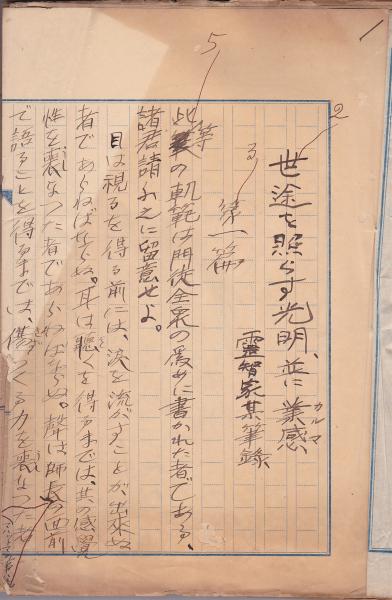 5
2
世途を照らす光明、並に業感
カルマ
霊智家某筆録
る
第一篇
此等の軌範は門徒全衆の為めに書かれた者である、
諸君請ふ之に留意せよ。
目は視るを得る前には、涙を流がすことが出来ぬ
者であらねばならぬ。耳は聴くを得るまでは、其の感覚
性を喪なつた者であらねばならぬ。声は師長の面前
で語ることを得るまでは、傷つくる力を喪なつた者